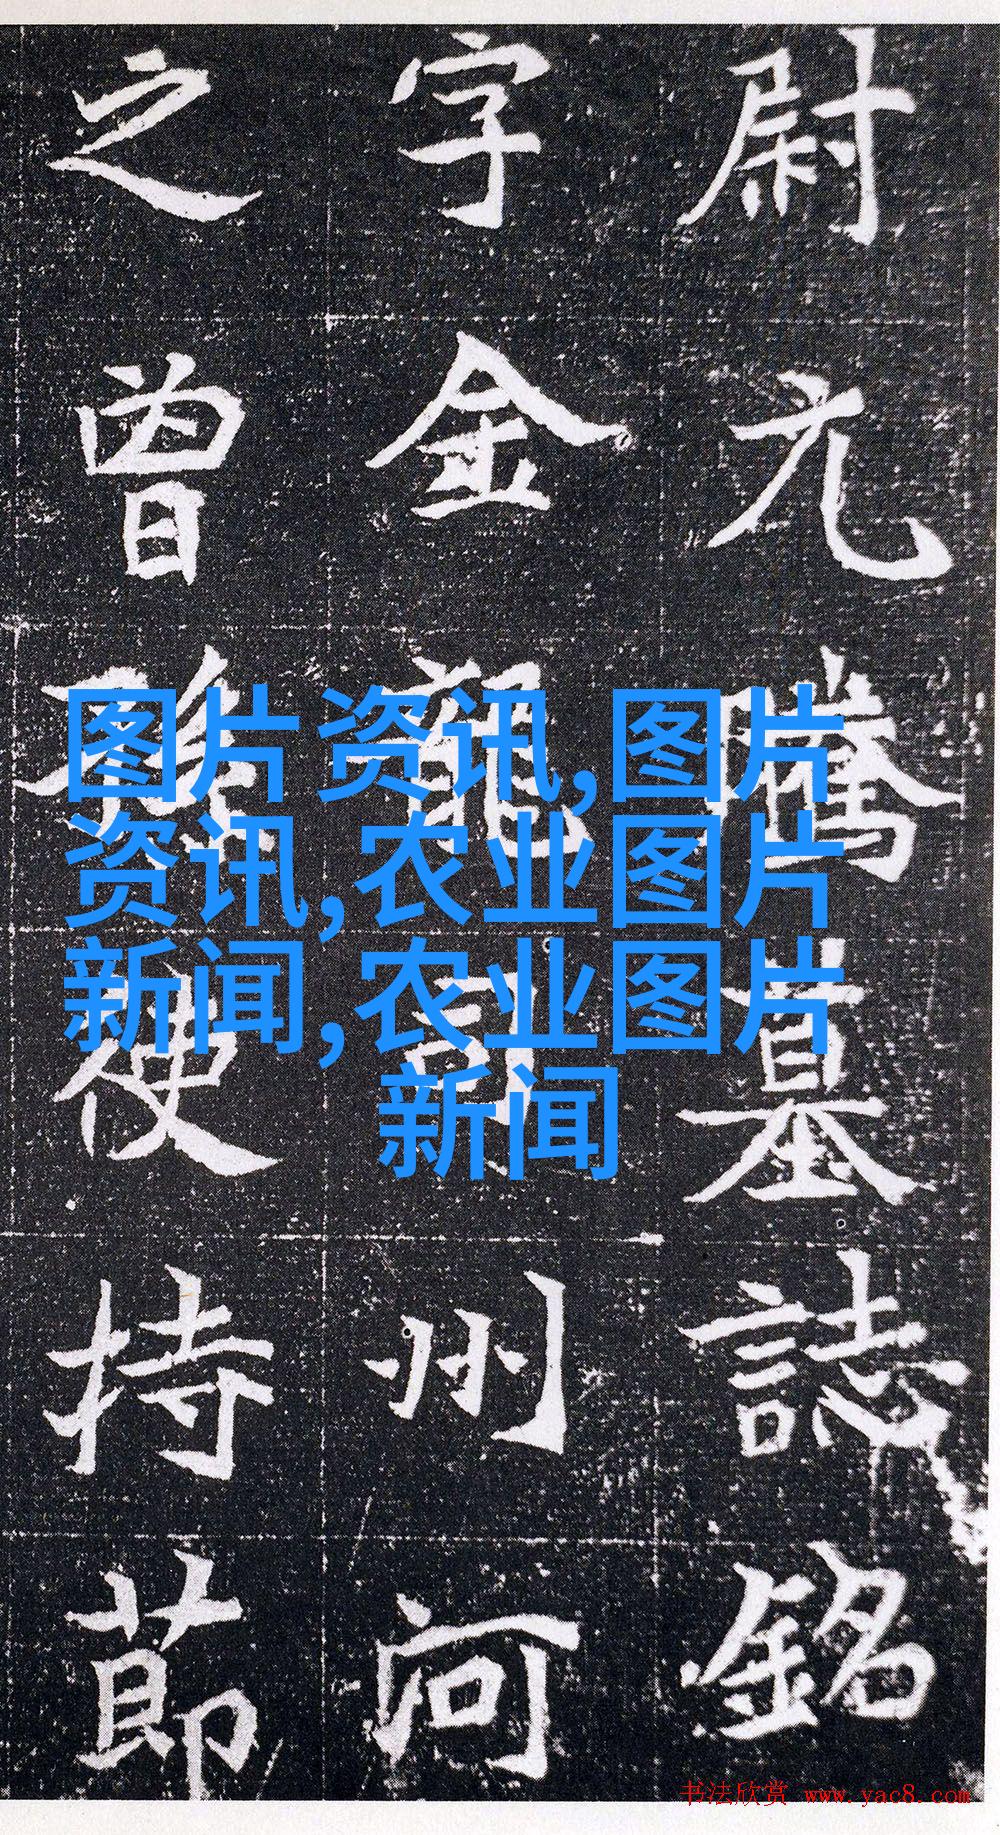 尉元騰墓誌銘
字金龍司州河
之曾孫使持節
图片资讯,图片
资讯,农业图片
新闻,农业图片
新闻
书法欣赏 www.yac8.com